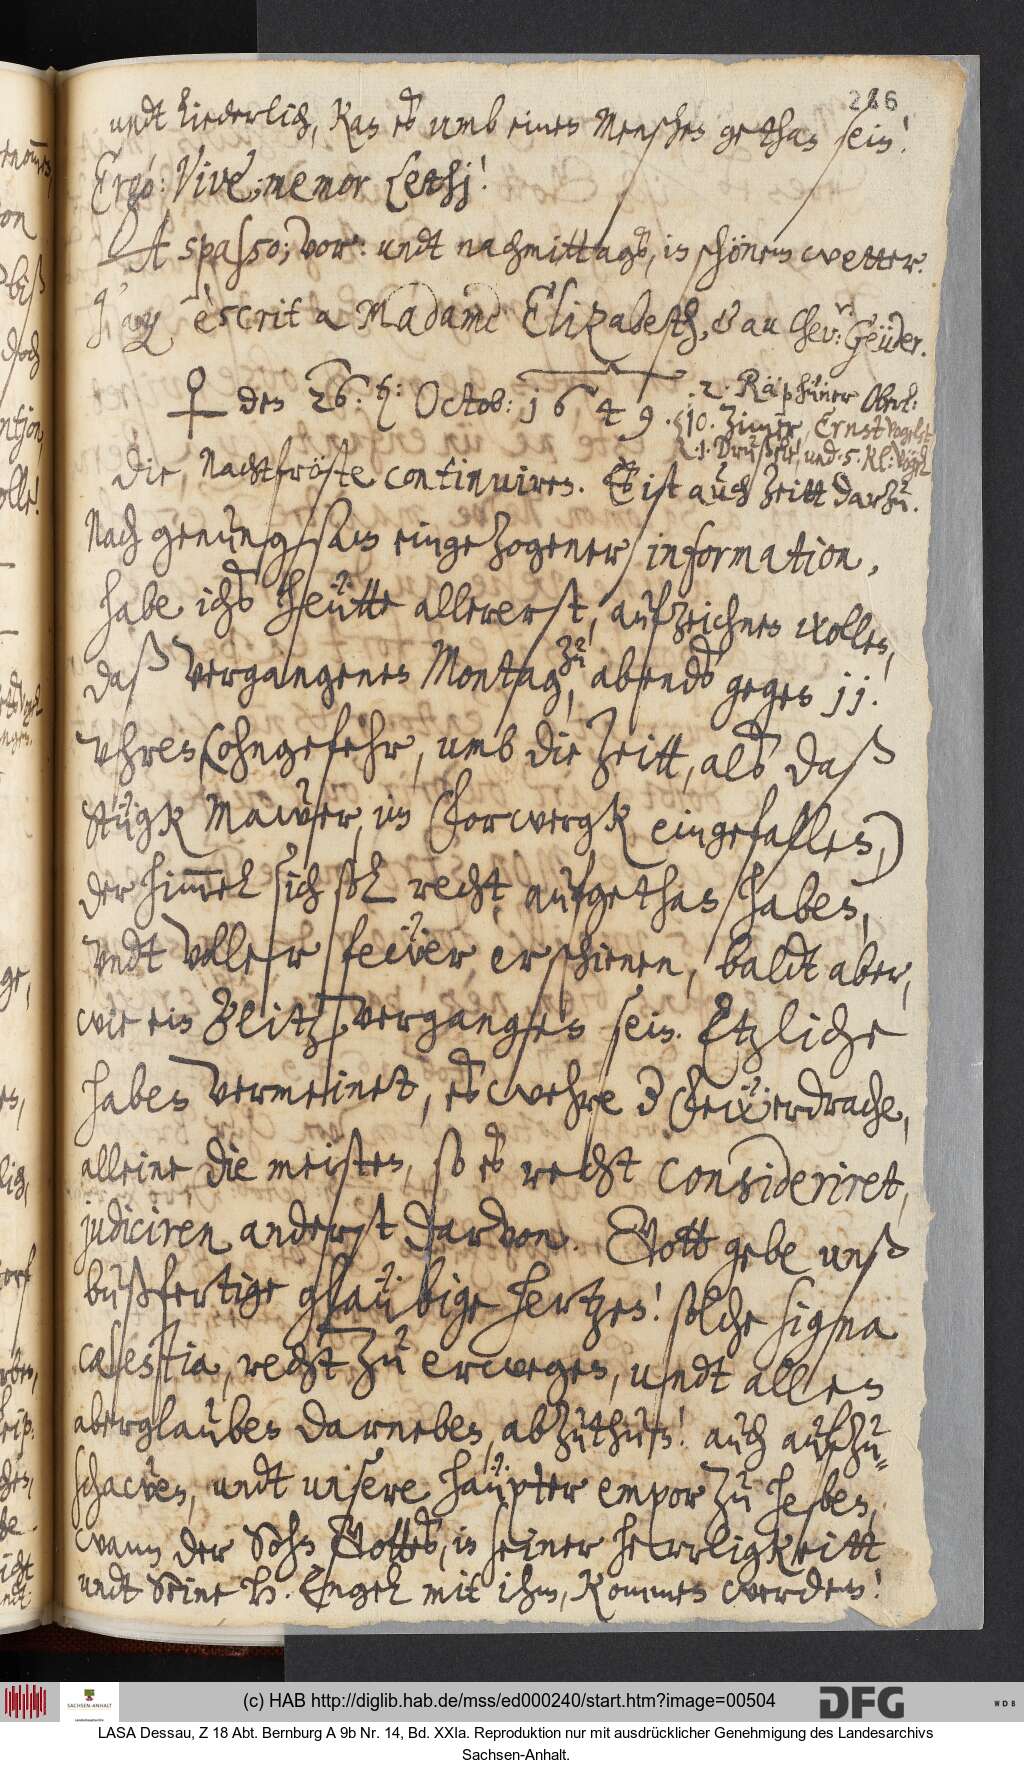 286
undt liederlich, kan es umb einen Menschen gethan sein!
Ergò: Vive; memor Lethj!
A spasso; vor: undt nachmittags, in schönem wetter.
J'ay èscrit a Madame Elizabeth, & au Chev.r: Geüder.
♀ den 26. h: Octob: 1649.
2. Raphüner Oberh:
10. Zimer, Ernst Vogelst
1. Drußel, und 5. kl: Vögel
Die Nachtfröste continuiren. Es ist auch zeitt darzu.
Nach genungsam eingezogener information,
habe ichs heütte allererst, aufzeichnen wollen,
daß vergangenen Montag, zu abends gegen 11.
Uhren (ohngefehr, umb die Zeitt, als daß
stügk Mawer, im Vorwergk eingefallen,)
der himmel sich sol recht aufgethan haben,
Undt voller feüer erschienen, baldt aber,
wie ein Blitz, vergangen sein. Etzliche
haben vermeinet, es wehre d Feüerdrache,
alleine die meisten, so es recht consideriret,
judiciren anderst darvon. Gott gebe unß
bußfertige glaubige hertzen! solche signa
cælestia, recht zu erwegen, undt allen
aberglauben darneben, abzuthun! auch aufzu-
schawen, undt unsere haüpter empor zu heben,
wann der Sohn Gottes, in seiner herrligkeitt
undt Seine h. Engel mit ihm, kommen werden!
(c) HAB http://diglib.hab.de/mss/ed000240/start.htm?image=00504
SACHSEN-ANHALT
DFG
WDB
LASA Dessau, Z 18 Abt. Bernburg A 9b Nr. 14, Bd. XXIa. Reproduktion nur mit ausdrücklicher Genehmigung des Landesarchivs
Sachsen-Anhalt.